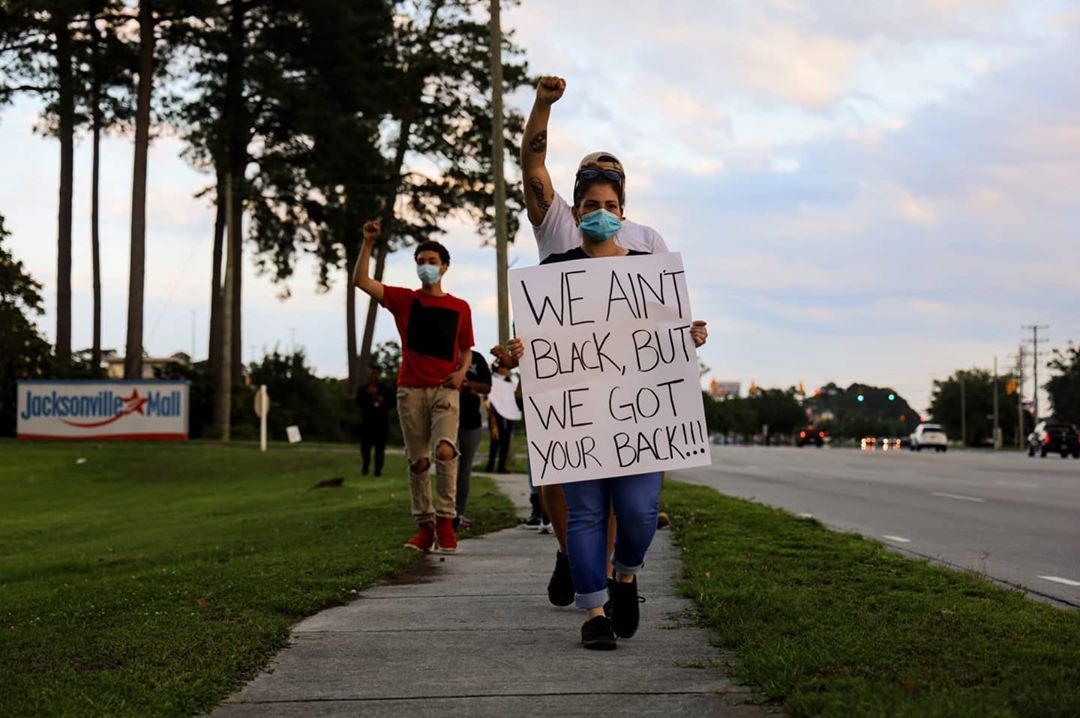 Jacksonville Mall
WE AIN'T
BLACK, BUT
WE GOT
YOUR BACK!!!